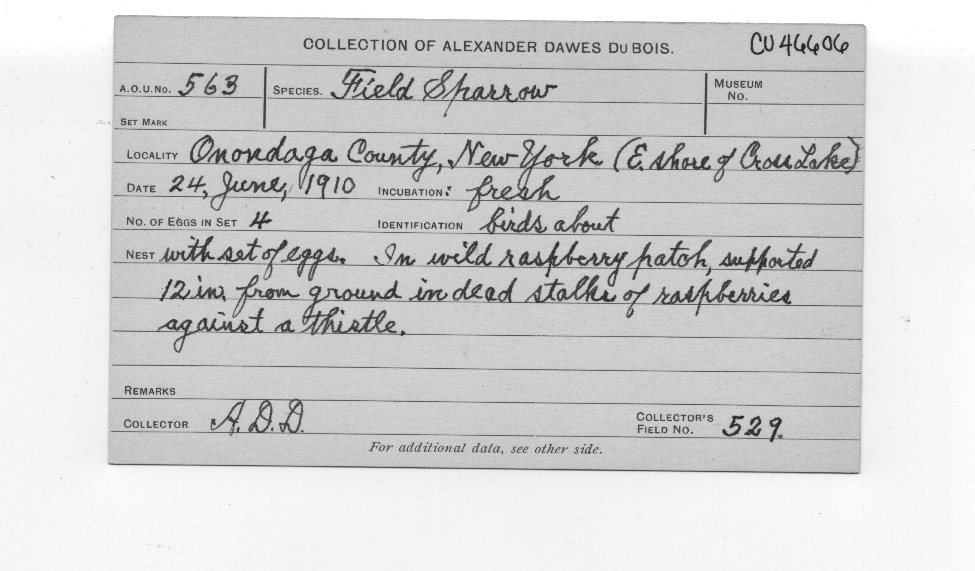 COLLECTION OF ALEXANDER DAWES DU BOIS. CU46606
A.O.U. No. 563 SPECIES. Field Sparrow MUSEUM No.
SET MARK
LOCALITY Onondaga County, New York (E. shore of Cross Lake)
DATE 24, June, 1910 INCUBATION: fresh
NO. OF EGGS IN SET 4 IDENTIFICATION birds about
NEST with set of eggs. In wild raspberry patch, supported
12 in. from ground in dead stalks of raspberries
against a thistle.
REMARKS
COLLECTOR A.D.D. COLLECTOR'S FIELD NO. 529.
For additional data, see other side.